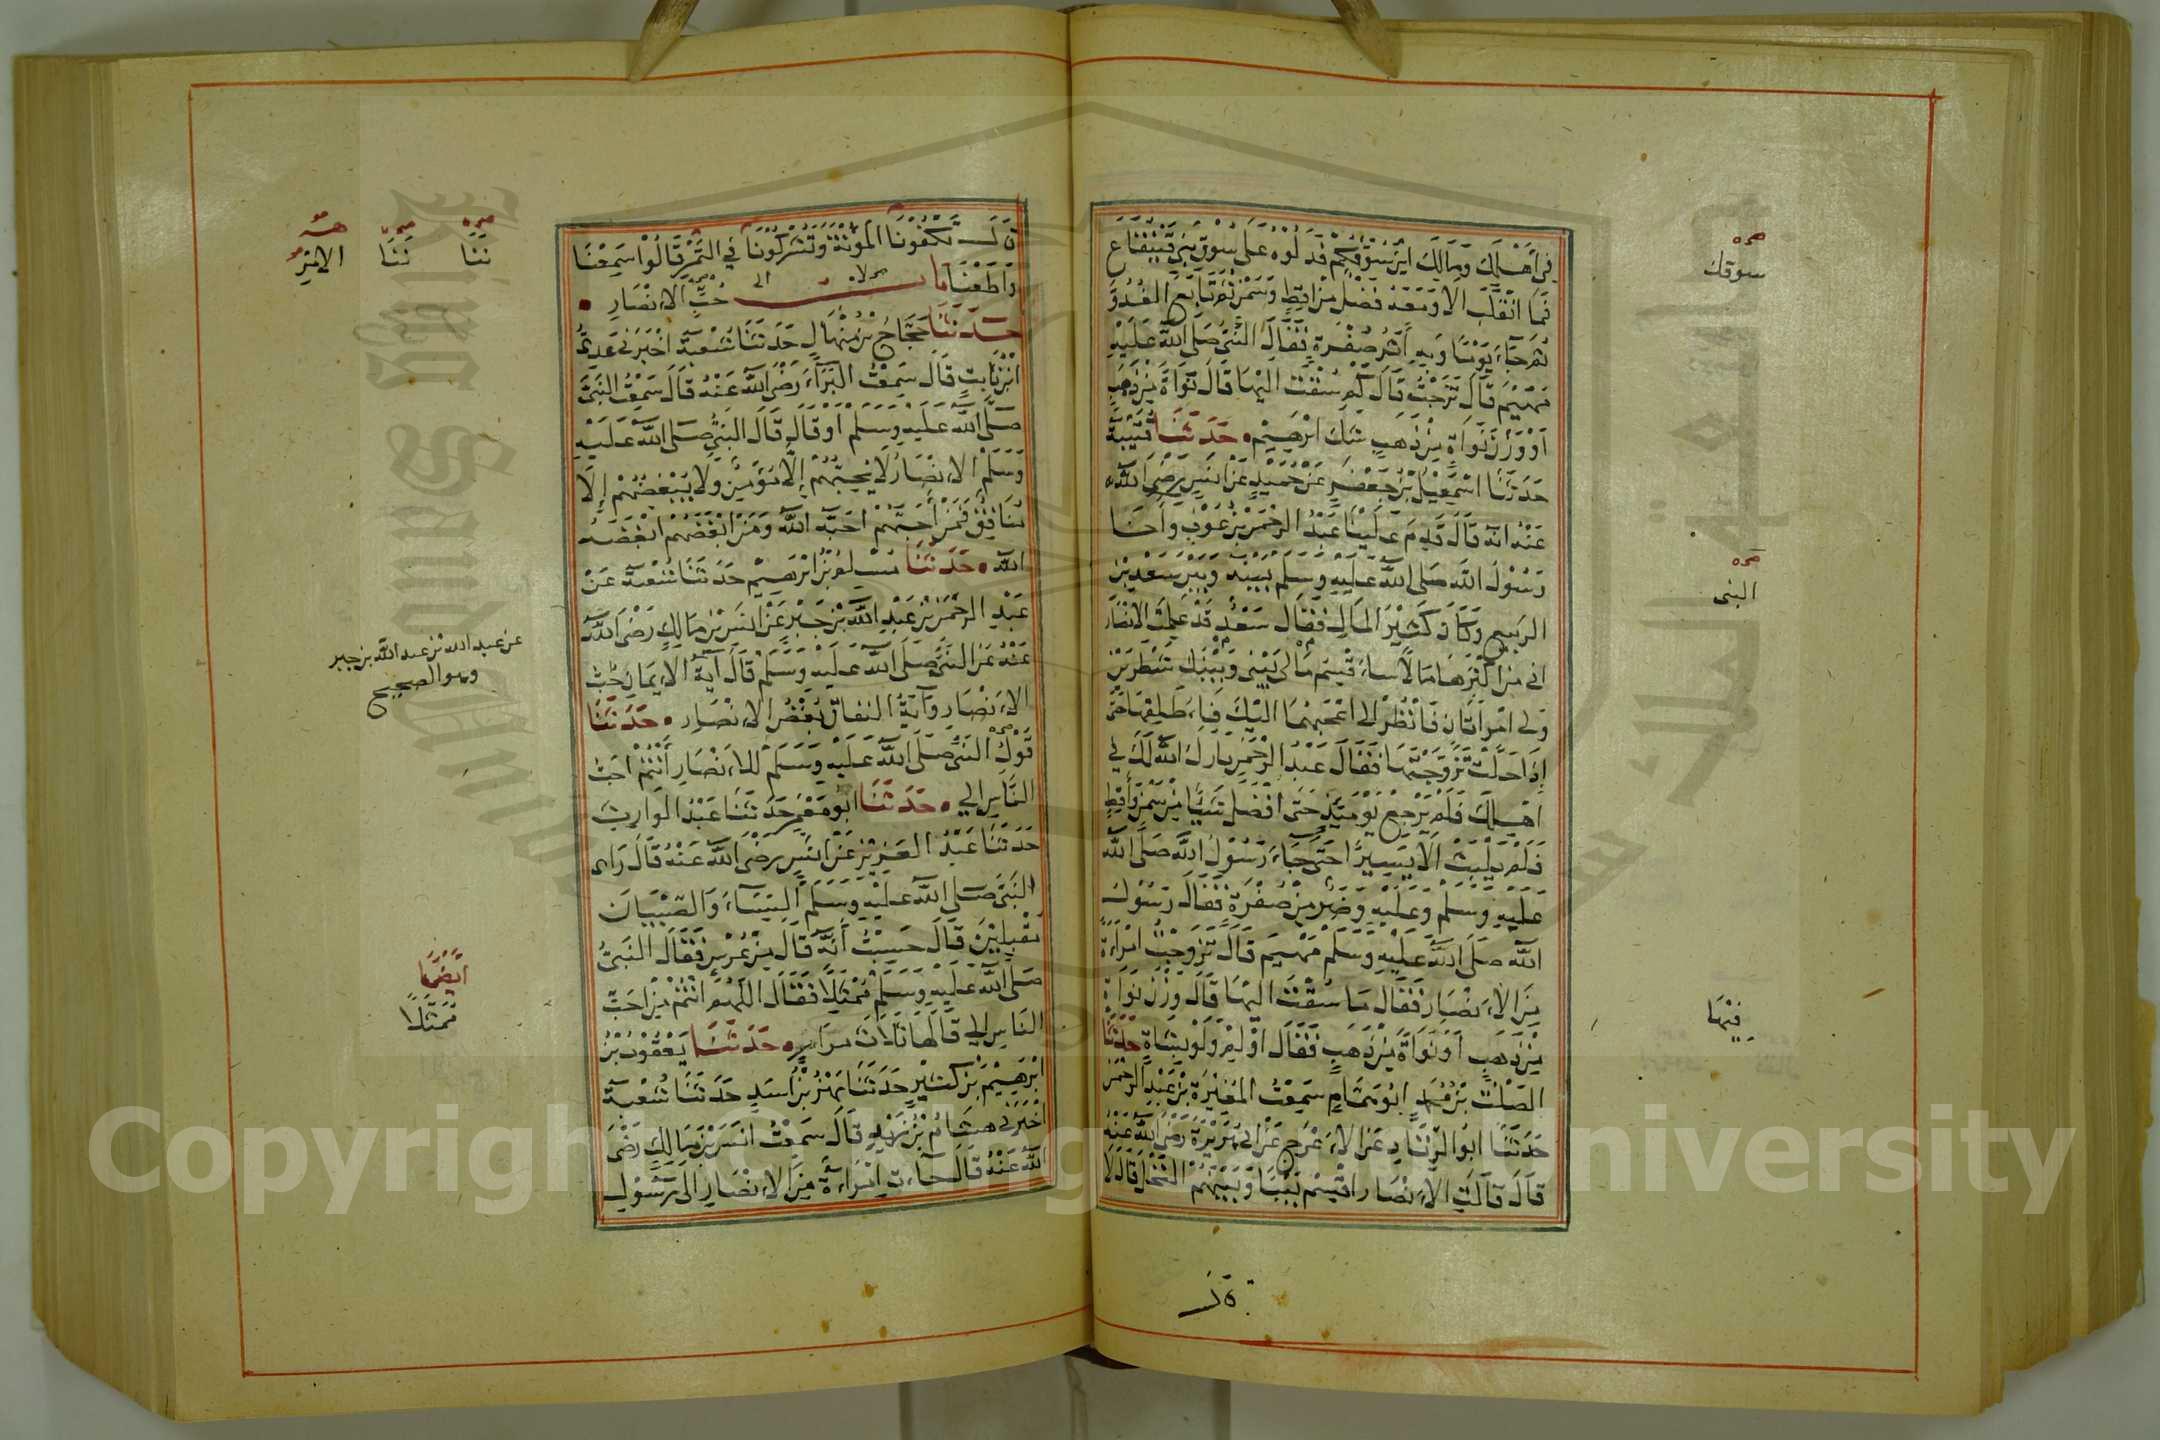 فِي اَهْلِكَ وَمَالِكَ اَيْنَ سُوْقُكُمْ فَدَلُّوْهُ عَلَى سُوْقِ بَنِي قَيْنُقَاعَ
فَمَا انْقَلَبَ اِلَّا وَمَعَهُ فَضْلٌ مِنْ اَقِطٍ وَسَمْنٍ ثُمَّ تَابَعَ الْغُدُوَّ
ثُمَّ جَآءَ يَوْمًا وَبِهِ اَثَرُ صُفْرَةٍ فَقَالَ النَّبِيُّ صَلَّى اللّٰهُ عَلَيْهِ
مَهْيَمْ قَالَ تَزَوَّجْتُ قَالَ كَمْ سُقْتَ اِلَيْهَا قَالَ نَوَاةً مِنْ ذَهَبٍ
اَوْ وَزْنَ نَوَاةٍ مِنْ ذَهَبٍ شَكَّ اِبْرٰهِيْمُ حَدَّثَنَا قُتَيْبَةُ
حَدَّثَنَا اِسْمٰعِيْلُ بْنُ جَعْفَرٍ عَنْ حُمَيْدٍ عَنْ اَنَسٍ رَضِيَ اللّٰهُ
عَنْهُ اَنَّهُ قَالَ قَدِمَ عَلَيْنَا عَبْدُ الرَّحْمٰنِ بْنُ عَوْفٍ وَآخَا
رَسُوْلُ اللّٰهِ صَلَّى اللّٰهُ عَلَيْهِ وَسَلَّمَ بَيْنَهُ وَبَيْنَ سَعْدِ بْنِ
الرَّبِيْعِ وَكَانَ كَثِيْرَ الْمَالِ فَقَالَ سَعْدٌ قَدْ عَلِمَتِ الْاَنْصَارُ
اَنِّي مِنْ اَكْثَرِهَا مَالًا سَاَقْسِمُ مَالِي بَيْنِي وَبَيْنَكَ شَطْرَيْنِ
وَلِي امْرَاَتَانِ فَانْظُرْ اِلَى اَعْجَبِهِمَا اِلَيْكَ فَاُطَلِّقُهَا حَتَّى
اِذَا حَلَّتْ تَزَوَّجْتَهَا فَقَالَ عَبْدُ الرَّحْمٰنِ بَارَكَ اللّٰهُ لَكَ فِي
اَهْلِكَ فَلَمْ يَرْجِعْ يَوْمَئِذٍ حَتَّى اَفْضَلَ شَيْئًا مِنْ سَمْنٍ وَاَقِطٍ
فَلَمْ يَلْبَثْ اِلَّا يَسِيْرًا حَتَّى جَآءَ رَسُوْلَ اللّٰهِ صَلَّى اللّٰهُ
عَلَيْهِ وَسَلَّمَ وَعَلَيْهِ وَضَرٌ مِنْ صُفْرَةٍ فَقَالَ رَسُوْلُ
اللّٰهِ صَلَّى اللّٰهُ عَلَيْهِ وَسَلَّمَ مَهْيَمْ قَالَ تَزَوَّجْتُ امْرَاَةً
مِنَ الْاَنْصَارِ فَقَالَ مَا سُقْتَ اِلَيْهَا قَالَ وَزْنَ نَوَاةٍ
مِنْ ذَهَبٍ اَوْ نَوَاةً مِنْ ذَهَبٍ فَقَالَ اَوْلِمْ وَلَوْ بِشَاةٍ حَدَّثَنَا
الصَّلْتُ بْنُ مُحَمَّدٍ اَبُو هَمَّامٍ سَمِعْتُ الْمُغِيْرَةَ بْنَ عَبْدِ الرَّحْمٰنِ
حَدَّثَنَا اَبُو الزِّنَادِ عَنِ الْاَعْرَجِ عَنْ اَبِي هُرَيْرَةَ رَضِيَ اللّٰهُ عَنْهُ
قَالَ قَالَتِ الْاَنْصَارُ اقْسِمْ بَيْنَنَا وَبَيْنَهُمُ النَّخْلَ قَالَ لَا
سوقك
النبى
فِيْهَا
قَالَ تَكْفُوْنَا الْمَؤُنَةَ وَتُشْرِكُوْنَا فِي التَّمْرِ قَالُوْا سَمِعْنَا
وَاَطَعْنَا بَابُ حُبِّ الْاَنْصَارِ
حَدَّثَنَا حَجَّاجُ بْنُ مِنْهَالٍ حَدَّثَنَا شُعْبَةُ اَخْبَرَنِي عَدِيُّ
ابْنُ ثَابِتٍ قَالَ سَمِعْتُ الْبَرَآءَ رَضِيَ اللّٰهُ عَنْهُ قَالَ سَمِعْتُ النَّبِيَّ
صَلَّى اللّٰهُ عَلَيْهِ وَسَلَّمَ اَوْ قَالَ قَالَ النَّبِيُّ صَلَّى اللّٰهُ عَلَيْهِ
وَسَلَّمَ الْاَنْصَارُ لَا يُحِبُّهُمْ اِلَّا مُؤْمِنٌ وَلَا يُبْغِضُهُمْ اِلَّا
مُنَافِقٌ فَمَنْ اَحَبَّهُمْ اَحَبَّهُ اللّٰهُ وَمَنْ اَبْغَضَهُمْ اَبْغَضَهُ
اللّٰهُ حَدَّثَنَا مُسْلِمُ بْنُ اِبْرٰهِيْمَ حَدَّثَنَا شُعْبَةُ عَنْ
عَبْدِ الرَّحْمٰنِ بْنِ عَبْدِ اللّٰهِ بْنِ جَبْرٍ عَنْ اَنَسِ بْنِ مَالِكٍ رَضِيَ اللّٰهُ
عَنْهُ عَنِ النَّبِيِّ صَلَّى اللّٰهُ عَلَيْهِ وَسَلَّمَ قَالَ آيَةُ الْاِيْمَانِ حُبُّ
الْاَنْصَارِ وَآيَةُ النِّفَاقِ بُغْضُ الْاَنْصَارِ حَدَّثَنَا
قَوْلِ النَّبِيِّ صَلَّى اللّٰهُ عَلَيْهِ وَسَلَّمَ لِلْاَنْصَارِ اَنْتُمْ اَحَبُّ
النَّاسِ اِلَيَّ حَدَّثَنَا اَبُو مَعْمَرٍ حَدَّثَنَا عَبْدُ الْوَارِثِ
حَدَّثَنَا عَبْدُ الْعَزِيْزِ عَنْ اَنَسٍ رَضِيَ اللّٰهُ عَنْهُ قَالَ رَاَى
النَّبِيُّ صَلَّى اللّٰهُ عَلَيْهِ وَسَلَّمَ النِّسَآءَ وَالصِّبْيَانَ
مُقْبِلِيْنَ قَالَ حَسِبْتُ اَنَّهُ قَالَ مِنْ عُرْسٍ فَقَالَ النَّبِيُّ
صَلَّى اللّٰهُ عَلَيْهِ وَسَلَّمَ مُمْثِلًا فَقَالَ اللّٰهُمَّ اَنْتُمْ مِنْ اَحَبِّ
النَّاسِ اِلَيَّ قَالَهَا ثَلَاثَ مِرَارٍ حَدَّثَنَا يَعْقُوْبُ بْنُ
اِبْرٰهِيْمَ بْنِ كَثِيْرٍ حَدَّثَنَا بَهْزُ بْنُ اَسَدٍ حَدَّثَنَا شُعْبَةُ
اَخْبَرَنِي هِشَامُ بْنُ زَيْدٍ قَالَ سَمِعْتُ اَنَسَ بْنَ مَالِكٍ رَضِيَ
اللّٰهُ عَنْهُ قَالَ جَآءَتِ امْرَاَةٌ مِنَ الْاَنْصَارِ اِلَى رَسُوْلِ
عن عبد الله بن عبد الله بن جبر
وهو الصحيح
اَيْضًا
مُمَثِّلًا
Copyright © King Saud University